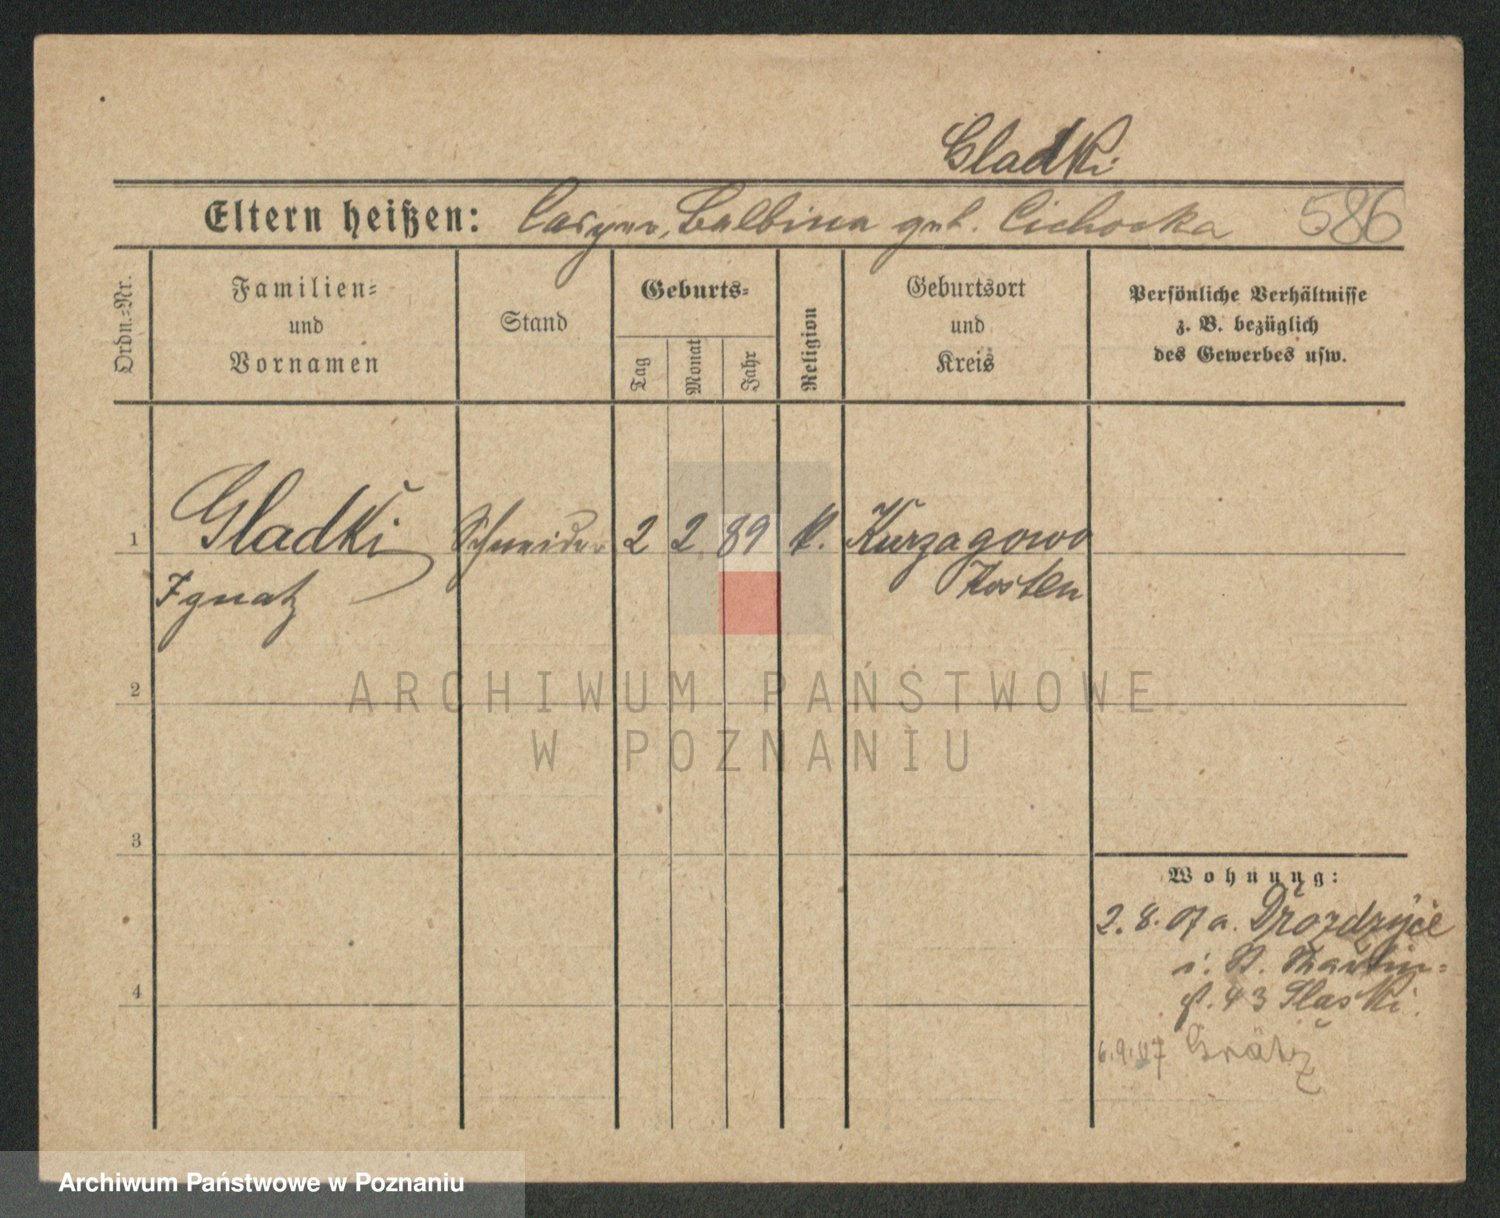 Gladki
Eltern heißen: Casper, Balbina geb. Cichocka 586
Ordn.-Nr.
Familien-
und
Vornamen
Stand
Geburts-
Tag
Monat
Jahr
Religion
Geburtsort
und
Kreis
Persönliche Verhältnisse
z. B. bezüglich
des Gewerbes usw.
1 Gladki Schneider 2 2 89 k. Kurzagowo
Ignatz Kosten
2
ARCHIWUM PAŃSTWOWE
W POZNANIU
3
Wohnung:
2. 8. 07 a. Drozdzyce
i. St. Martin-
st. 43 Slaski.
4
6.9.07 Grätz
Archiwum Państwowe w Poznaniu